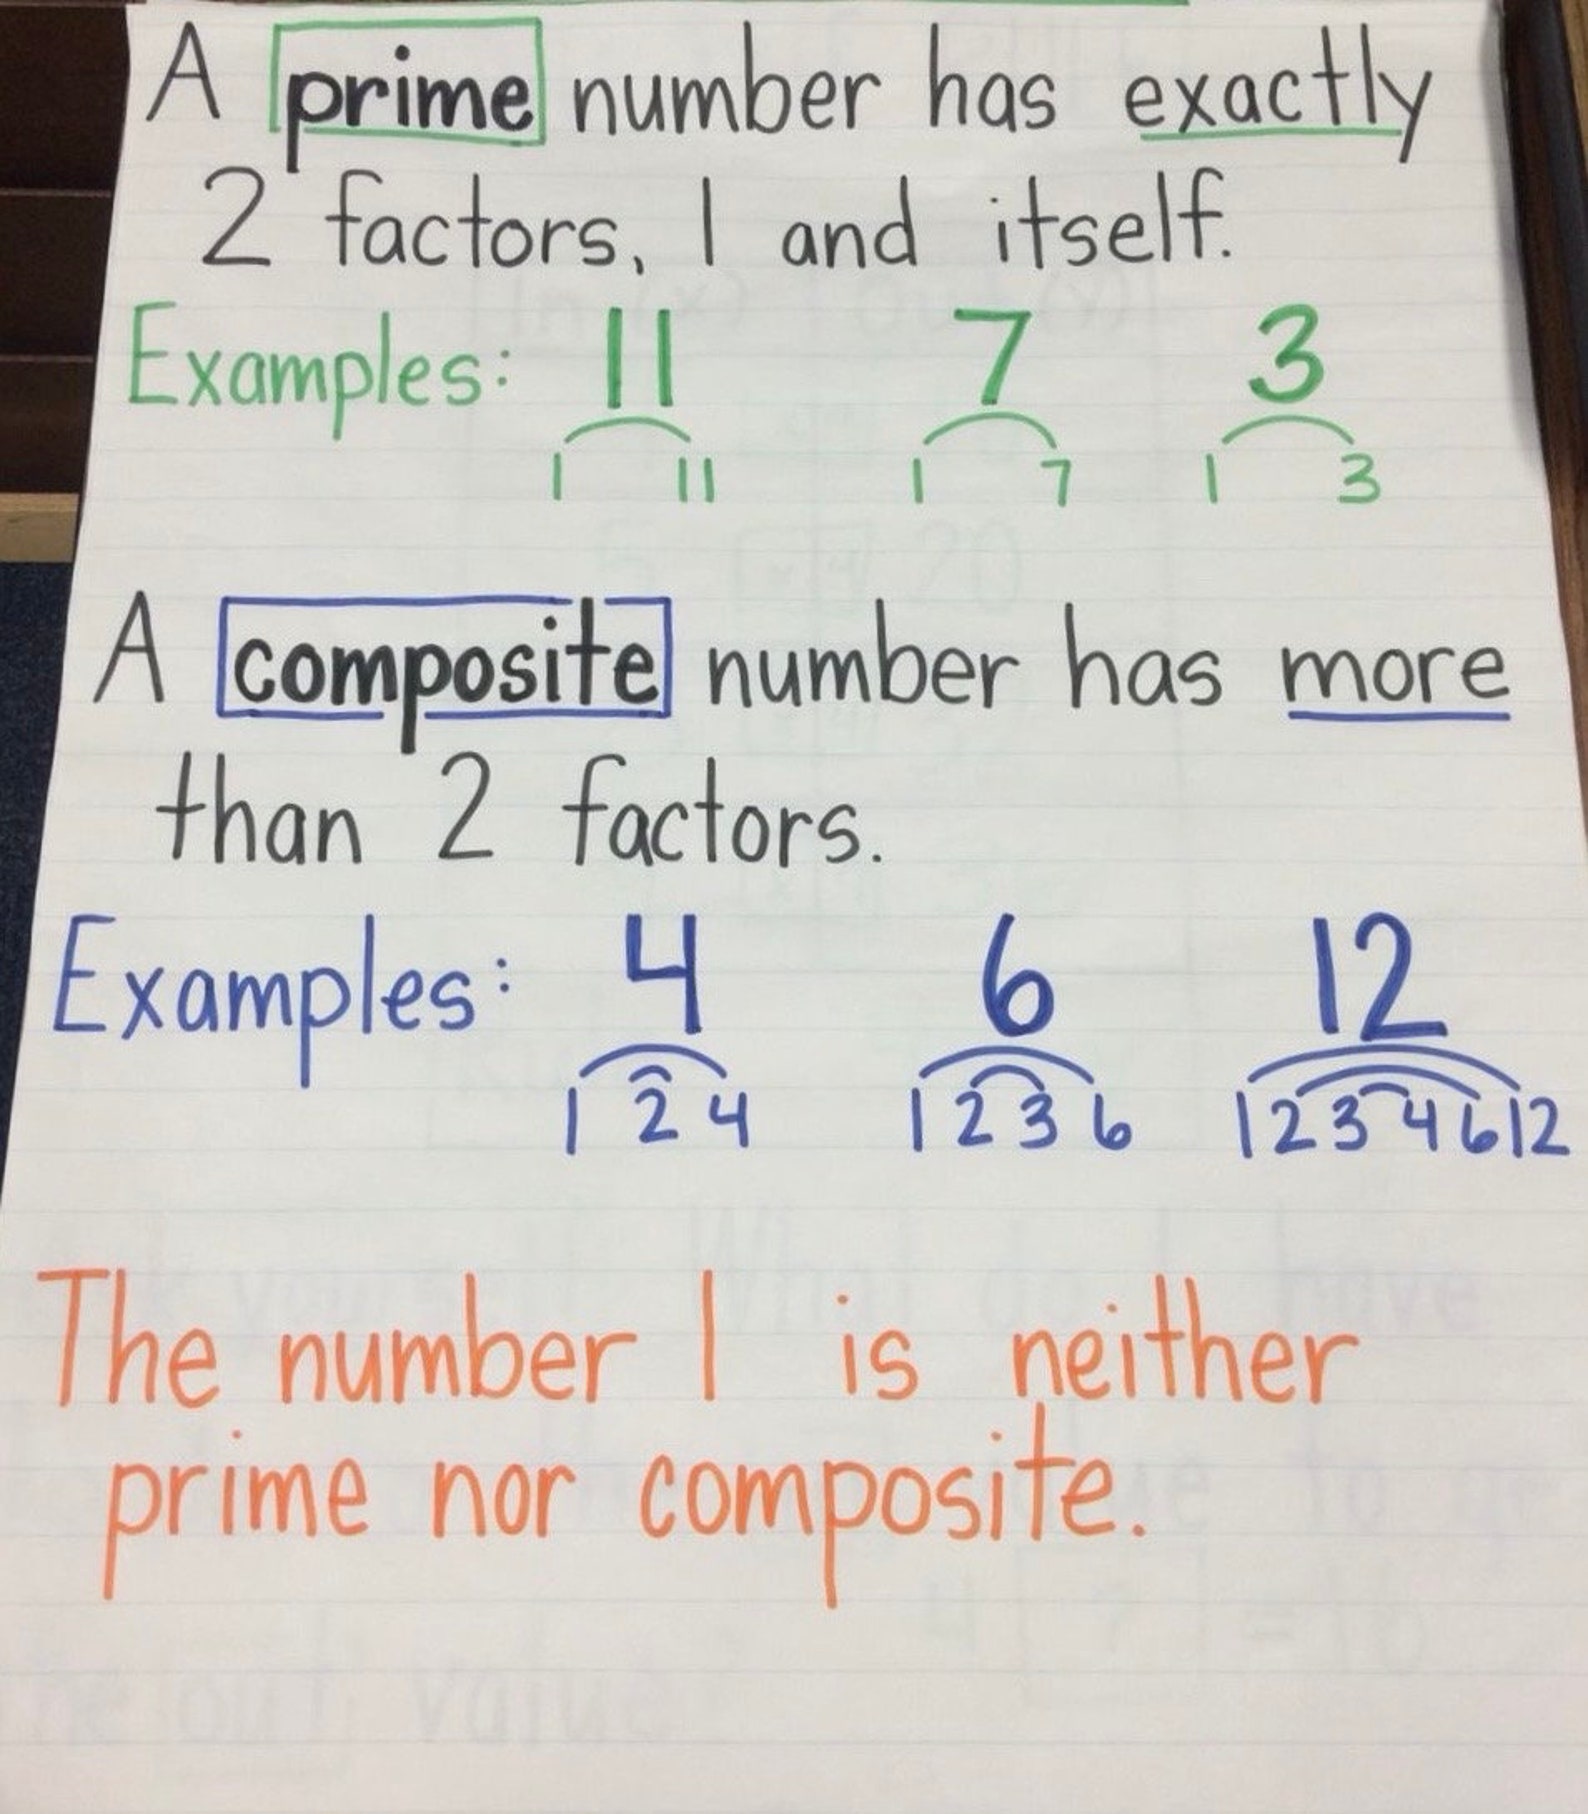 A prime number has exactly
2 factors, 1 and itself.
Examples: 11 7 3
1 11 1 7 1 3
A composite number has more
than 2 factors.
Examples: 4 6 12
1 2 4 1 2 3 6 1 2 3 4 6 12
The number 1 is neither
prime nor composite.